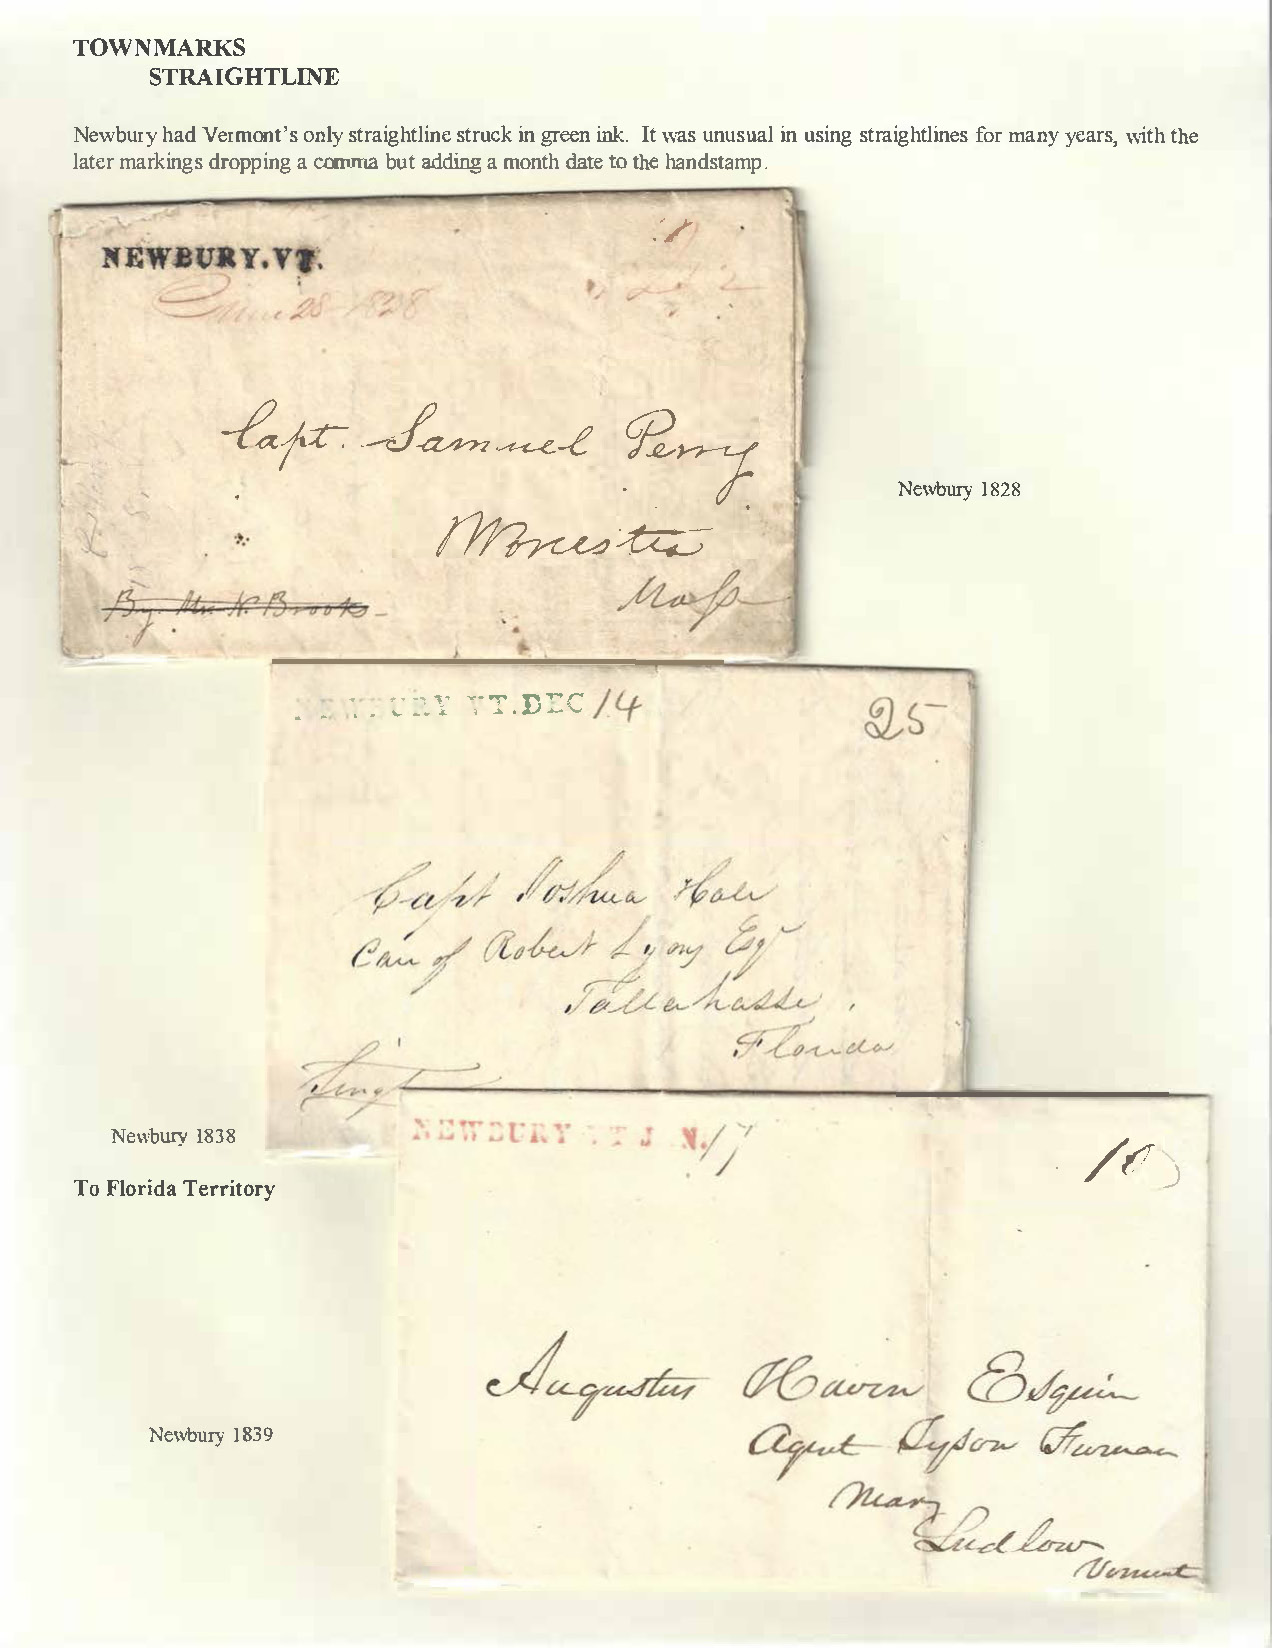 TOWNMARKS
STRAIGHTLINE
Newbury had Vermont's only straightline struck in green ink. It was unusual in using straightlines for many years, with the
later markings dropping a comma but adding a month date to the handstamp.
NEWBURY.VT.
28 1828
Capt. Samuel Perry
Worcester
Mass
By Mr. N. Brooks
Newbury 1828
NEWBURY VT.DEC 14
25
Capt Joshua Hale
Care of Robert Lyons Esqr
Tallahasse
Florida
Newbury 1838
To Florida Territory
NEWBURY VT J N. 17
10
Augustus Haven Esquire
Agent Tyson Furnace
Near
Ludlow
Vermont
Newbury 1839